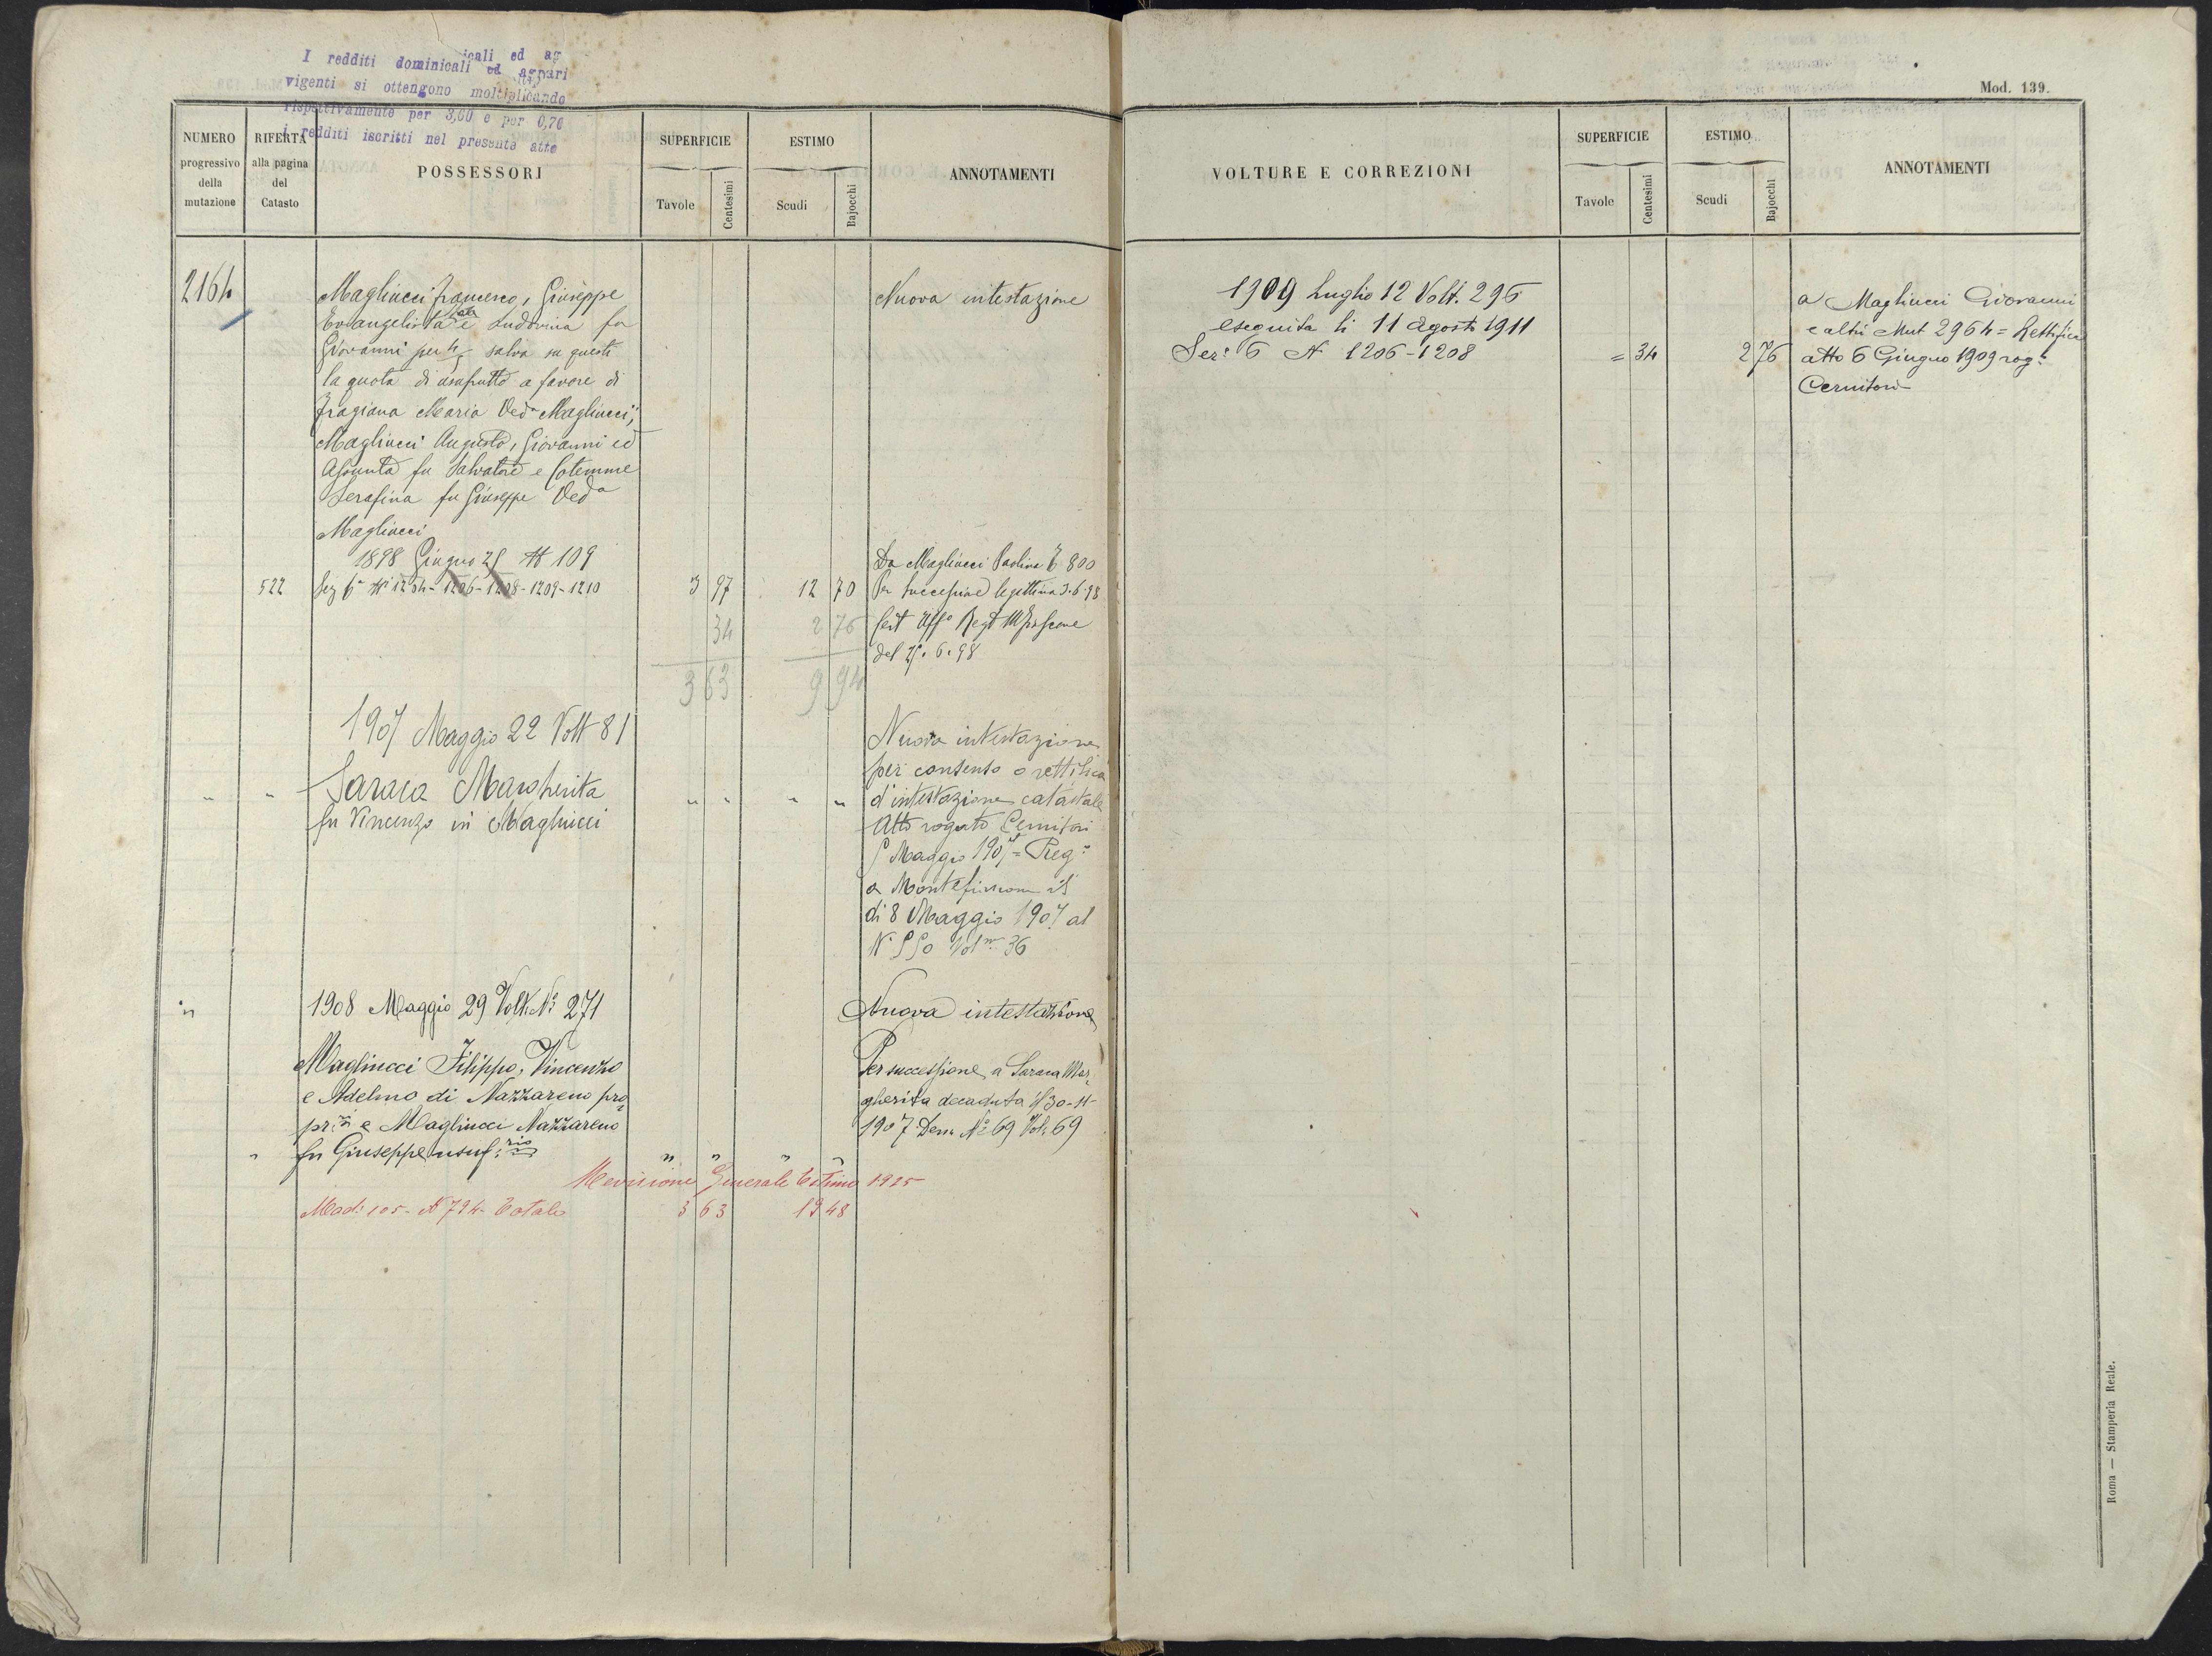 I redditi dominicali ed agrari
vigenti si ottengono moltiplicando
rispettivamente per 3,00 e per 0,70
i redditi iscritti nel presente atto
NUMERO
progressivo
della
mutazione
RIFERTA
alla pagina
del
Catasto
POSSESSORI
SUPERFICIE
Tavole
Centesimi
ESTIMO
Scudi
Bajocchi
ANNOTAMENTI
2164
Magliucci Francesco, Giuseppe
Evangelista e Ludovina fu
Giovanni per salva su questi
la quota di usufrutto a favore di
Fragiana Maria Ved.a Magliucci,
Magliucci Augusto, Giovanni ed
Assunta fu Salvatore e Cotemme
Serafina fu Giuseppe Ved.a
Magliucci
Nuova intestazione
1898 Giugno 25 N 109
522 Sez 6a Ni 1204-1206-1208-1209-1210 3 97 12 70
34 2 76
3 63 9 94
Da Magliucci Paolina 800
Per successione legittima 3.6.98
Cert Uff.o Reg.o Mfiascone
del 25.6.98
1907 Maggio 22 Volt 81
" " Saraca Margherita " " " "
fu Vincenzo in Magliucci
Nuova intestazione
per consenso o rettifica
d'intestazione catastale
Atto rogato Cernitori
5 Maggio 1907 = Reg.o
a Montefiascone il
di 8 Maggio 1907 al
N. 550 Vol. 36
" 1908 Maggio 29 Volt. N.° 271
Magliucci Filippo, Vincenzo
e Adelmo di Nazzareno pro
pr.ri e Magliucci Nazzareno
" fu Giuseppe usuf.rio " " " "
Nuova intestazione
Per successione a Saraca Mar
gherita decaduta il 30-11-
1907 Den. N.° 69 Vol. 69
Revisione Generale Estimo 1925
Mod. 105 - N 794 - Totale 3 63 19 48
Mod. 139.
VOLTURE E CORREZIONI
SUPERFICIE
Tavole
Centesimi
ESTIMO
Scudi
Bajocchi
ANNOTAMENTI
1909 Luglio 12 Volt. 296
eseguita li 11 Agosto 1911
Sez. 6 N 1206-1208 = 34 2 76
a Magliucci Giovanni
e altri Mut 2964 = Rettifica
atto 6 Giugno 1909 rog.
Cernitori
Roma — Stamperia Reale.